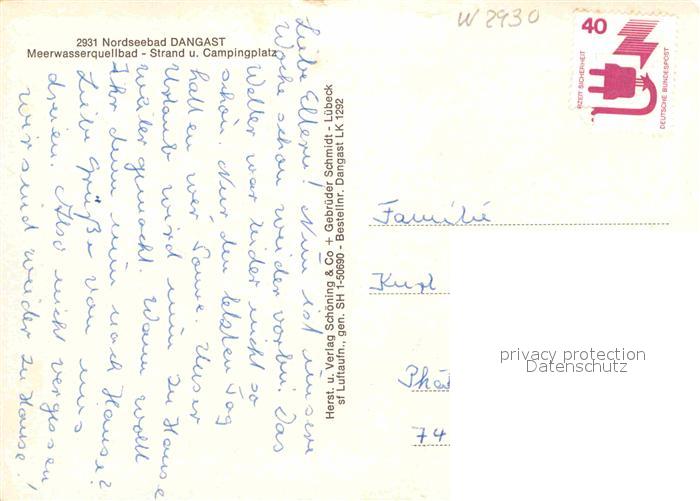 W 2930
2931 Nordseebad DANGAST
Meerwasserquellbad - Strand u. Campingplatz
Liebe Eltern! Nun ist unsere
Woche schon wieder vorbei. Das
Wetter war leider nicht so
schön. Nur den letzten Tag
hatten wir Sonne. Unser
Urlaub wird nun zu Hause
weiter gemacht. Wann wollt
Ihr denn nun nach Hause?
Liebe Grüße von uns
dreien. Also nicht vergessen
wir sind wieder zu Hause!
Herst. u. Verlag Schöning & Co + Gebrüder Schmidt - Lübeck
sf Luftaufn., gen. SH 1-50690 - Bestellnr. Dangast LK 1292
40
RZEIT SICHERHEIT
DEUTSCHE BUNDESPOST
Familie
Kurt
74
privacy protection
Datenschutz